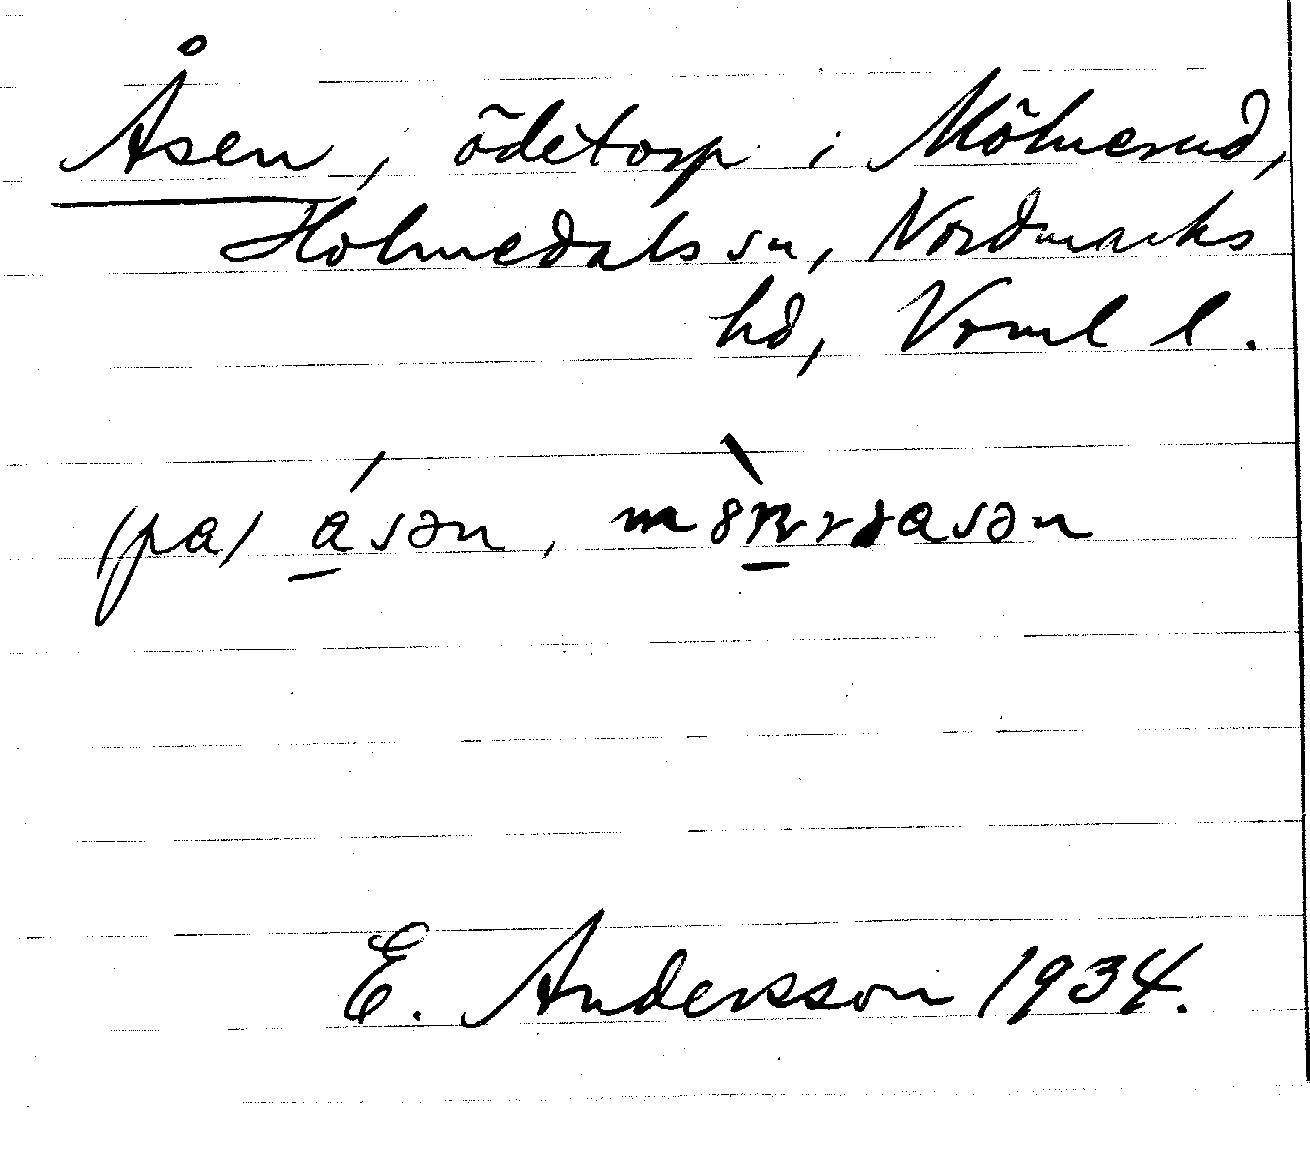 Åsen, ödetorp i Mölnerud,
Holmedals sn, Nordmarks
hd, Vrml l.
(pa) ásən,
E. Andersson 1934.